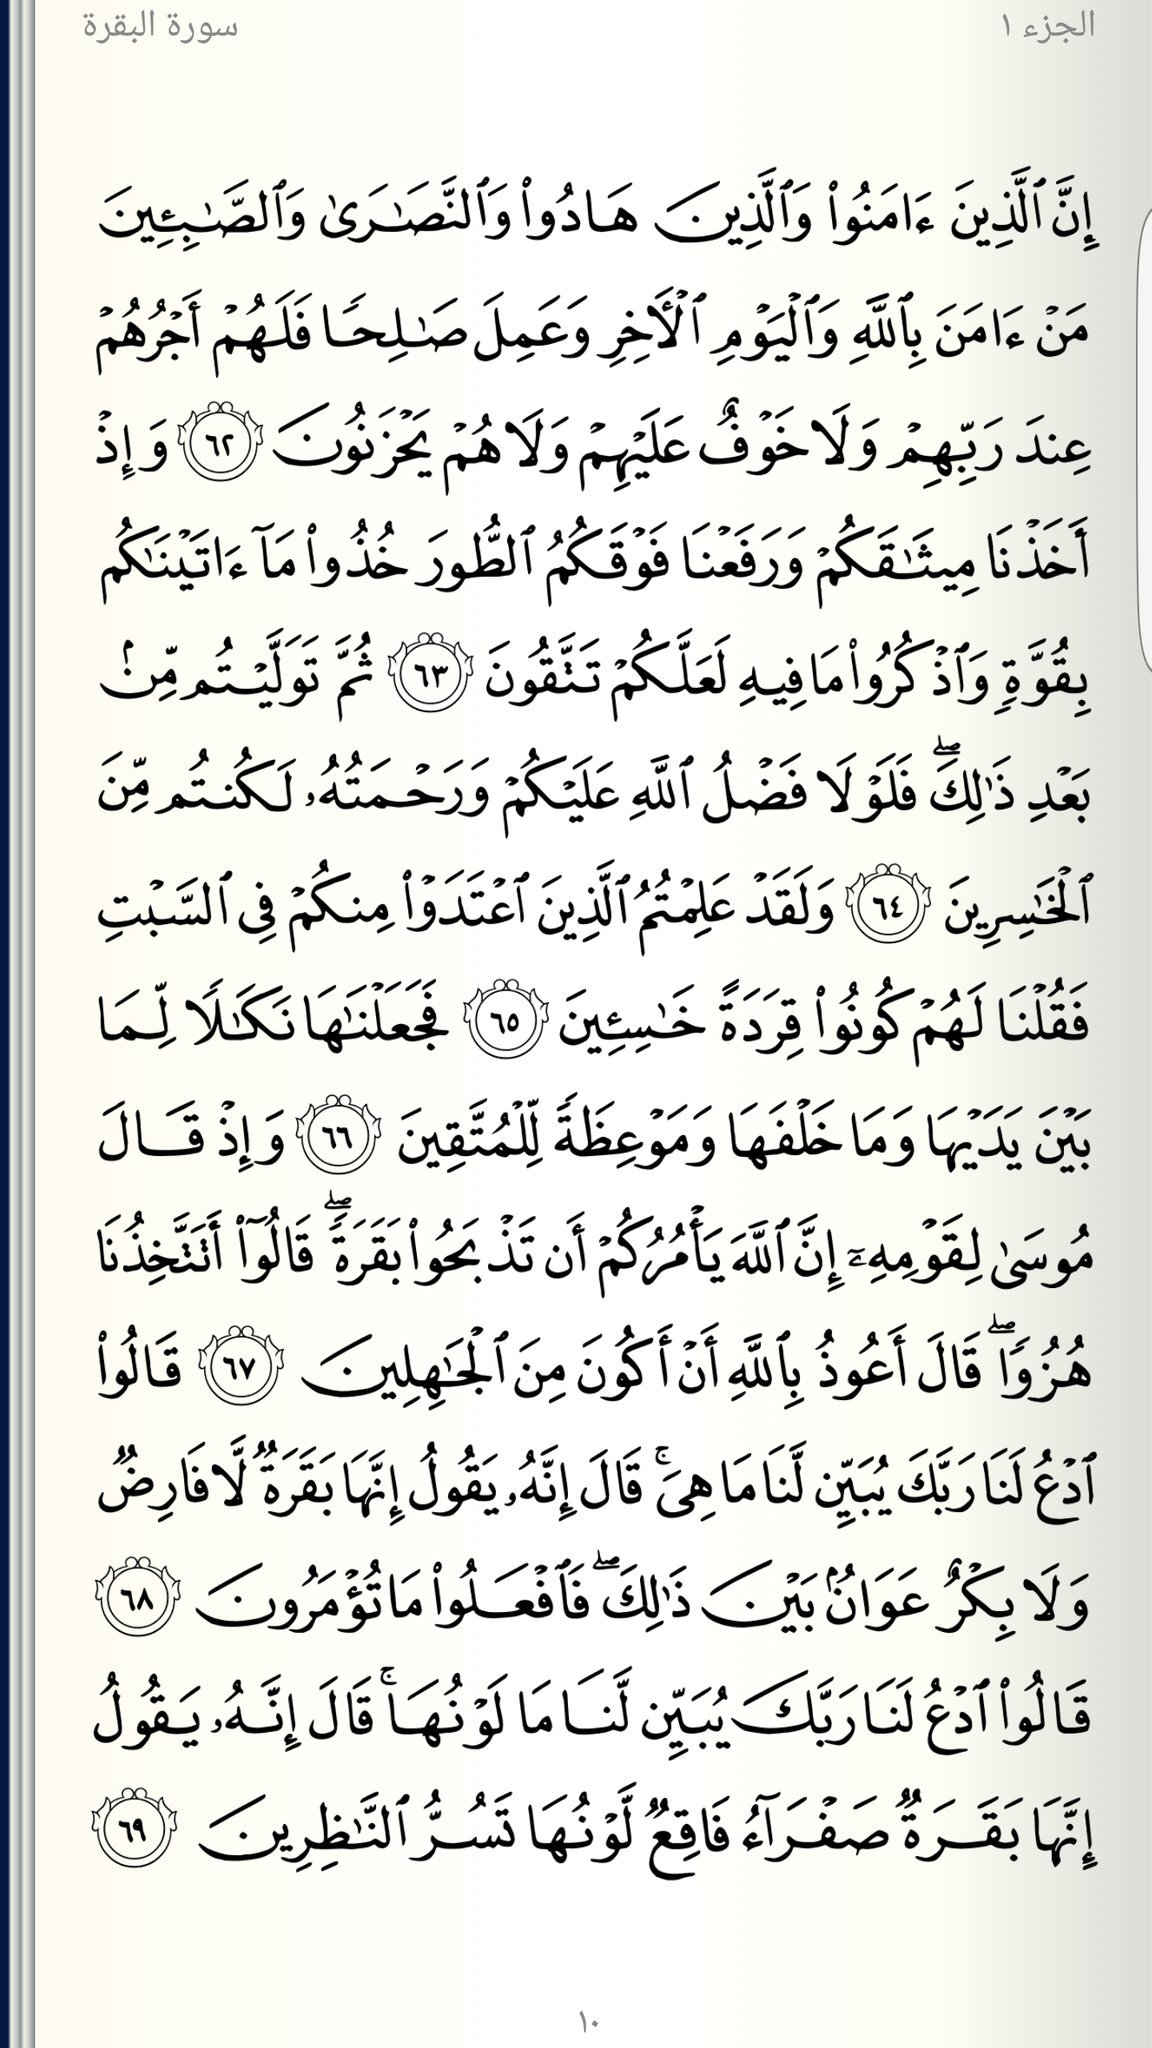 الجزء ١
سورة البقرة
إِنَّ ٱلَّذِينَ ءَامَنُوا۟ وَٱلَّذِينَ هَادُوا۟ وَٱلنَّصَـٰرَىٰ وَٱلصَّـٰبِـِٔينَ
مَنْ ءَامَنَ بِٱللَّهِ وَٱلْيَوْمِ ٱلْـَٔاخِرِ وَعَمِلَ صَـٰلِحًا فَلَهُمْ أَجْرُهُمْ
عِندَ رَبِّهِمْ وَلَا خَوْفٌ عَلَيْهِمْ وَلَا هُمْ يَحْزَنُونَ ٦٢ وَإِذْ
أَخَذْنَا مِيثَـٰقَكُمْ وَرَفَعْنَا فَوْقَكُمُ ٱلطُّورَ خُذُوا۟ مَآ ءَاتَيْنَـٰكُم
بِقُوَّةٍ وَٱذْكُرُوا۟ مَا فِيهِ لَعَلَّكُمْ تَتَّقُونَ ٦٣ ثُمَّ تَوَلَّيْتُم مِّنۢ
بَعْدِ ذَٰلِكَ ۖ فَلَوْلَا فَضْلُ ٱللَّهِ عَلَيْكُمْ وَرَحْمَتُهُۥ لَكُنتُم مِّنَ
ٱلْخَـٰسِرِينَ ٦٤ وَلَقَدْ عَلِمْتُمُ ٱلَّذِينَ ٱعْتَدَوْا۟ مِنكُمْ فِى ٱلسَّبْتِ
فَقُلْنَا لَهُمْ كُونُوا۟ قِرَدَةً خَـٰسِـِٔينَ ٦٥ فَجَعَلْنَـٰهَا نَكَـٰلًا لِّمَا
بَيْنَ يَدَيْهَا وَمَا خَلْفَهَا وَمَوْعِظَةً لِّلْمُتَّقِينَ ٦٦ وَإِذْ قَالَ
مُوسَىٰ لِقَوْمِهِۦٓ إِنَّ ٱللَّهَ يَأْمُرُكُمْ أَن تَذْبَحُوا۟ بَقَرَةً ۖ قَالُوٓا۟ أَتَتَّخِذُنَا
هُزُوًا ۖ قَالَ أَعُوذُ بِٱللَّهِ أَنْ أَكُونَ مِنَ ٱلْجَـٰهِلِينَ ٦٧ قَالُوا۟
ٱدْعُ لَنَا رَبَّكَ يُبَيِّن لَّنَا مَا هِىَ ۚ قَالَ إِنَّهُۥ يَقُولُ إِنَّهَا بَقَرَةٌ لَّا فَارِضٌ
وَلَا بِكْرٌ عَوَانٌۢ بَيْنَ ذَٰلِكَ ۖ فَٱفْعَلُوا۟ مَا تُؤْمَرُونَ ٦٨
قَالُوا۟ ٱدْعُ لَنَا رَبَّكَ يُبَيِّن لَّنَا مَا لَوْنُهَا ۚ قَالَ إِنَّهُۥ يَقُولُ
إِنَّهَا بَقَرَةٌ صَفْرَآءُ فَاقِعٌ لَّوْنُهَا تَسُرُّ ٱلنَّـٰظِرِينَ ٦٩
١٠